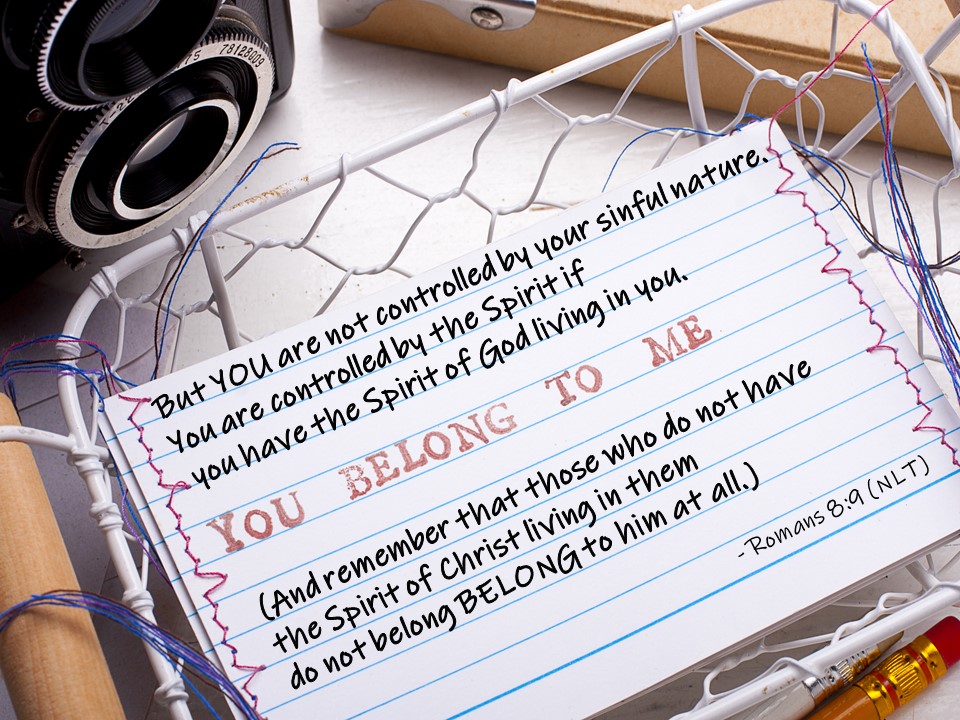 78128009
But YOU are not controlled by your sinful nature.
You are controlled by the Spirit if
you have the Spirit of God living in you.
YOU BELONG TO ME
(And remember that those who do not have
the Spirit of Christ living in them
do not belong BELONG to him at all.)
- Romans 8:9 (NLT)